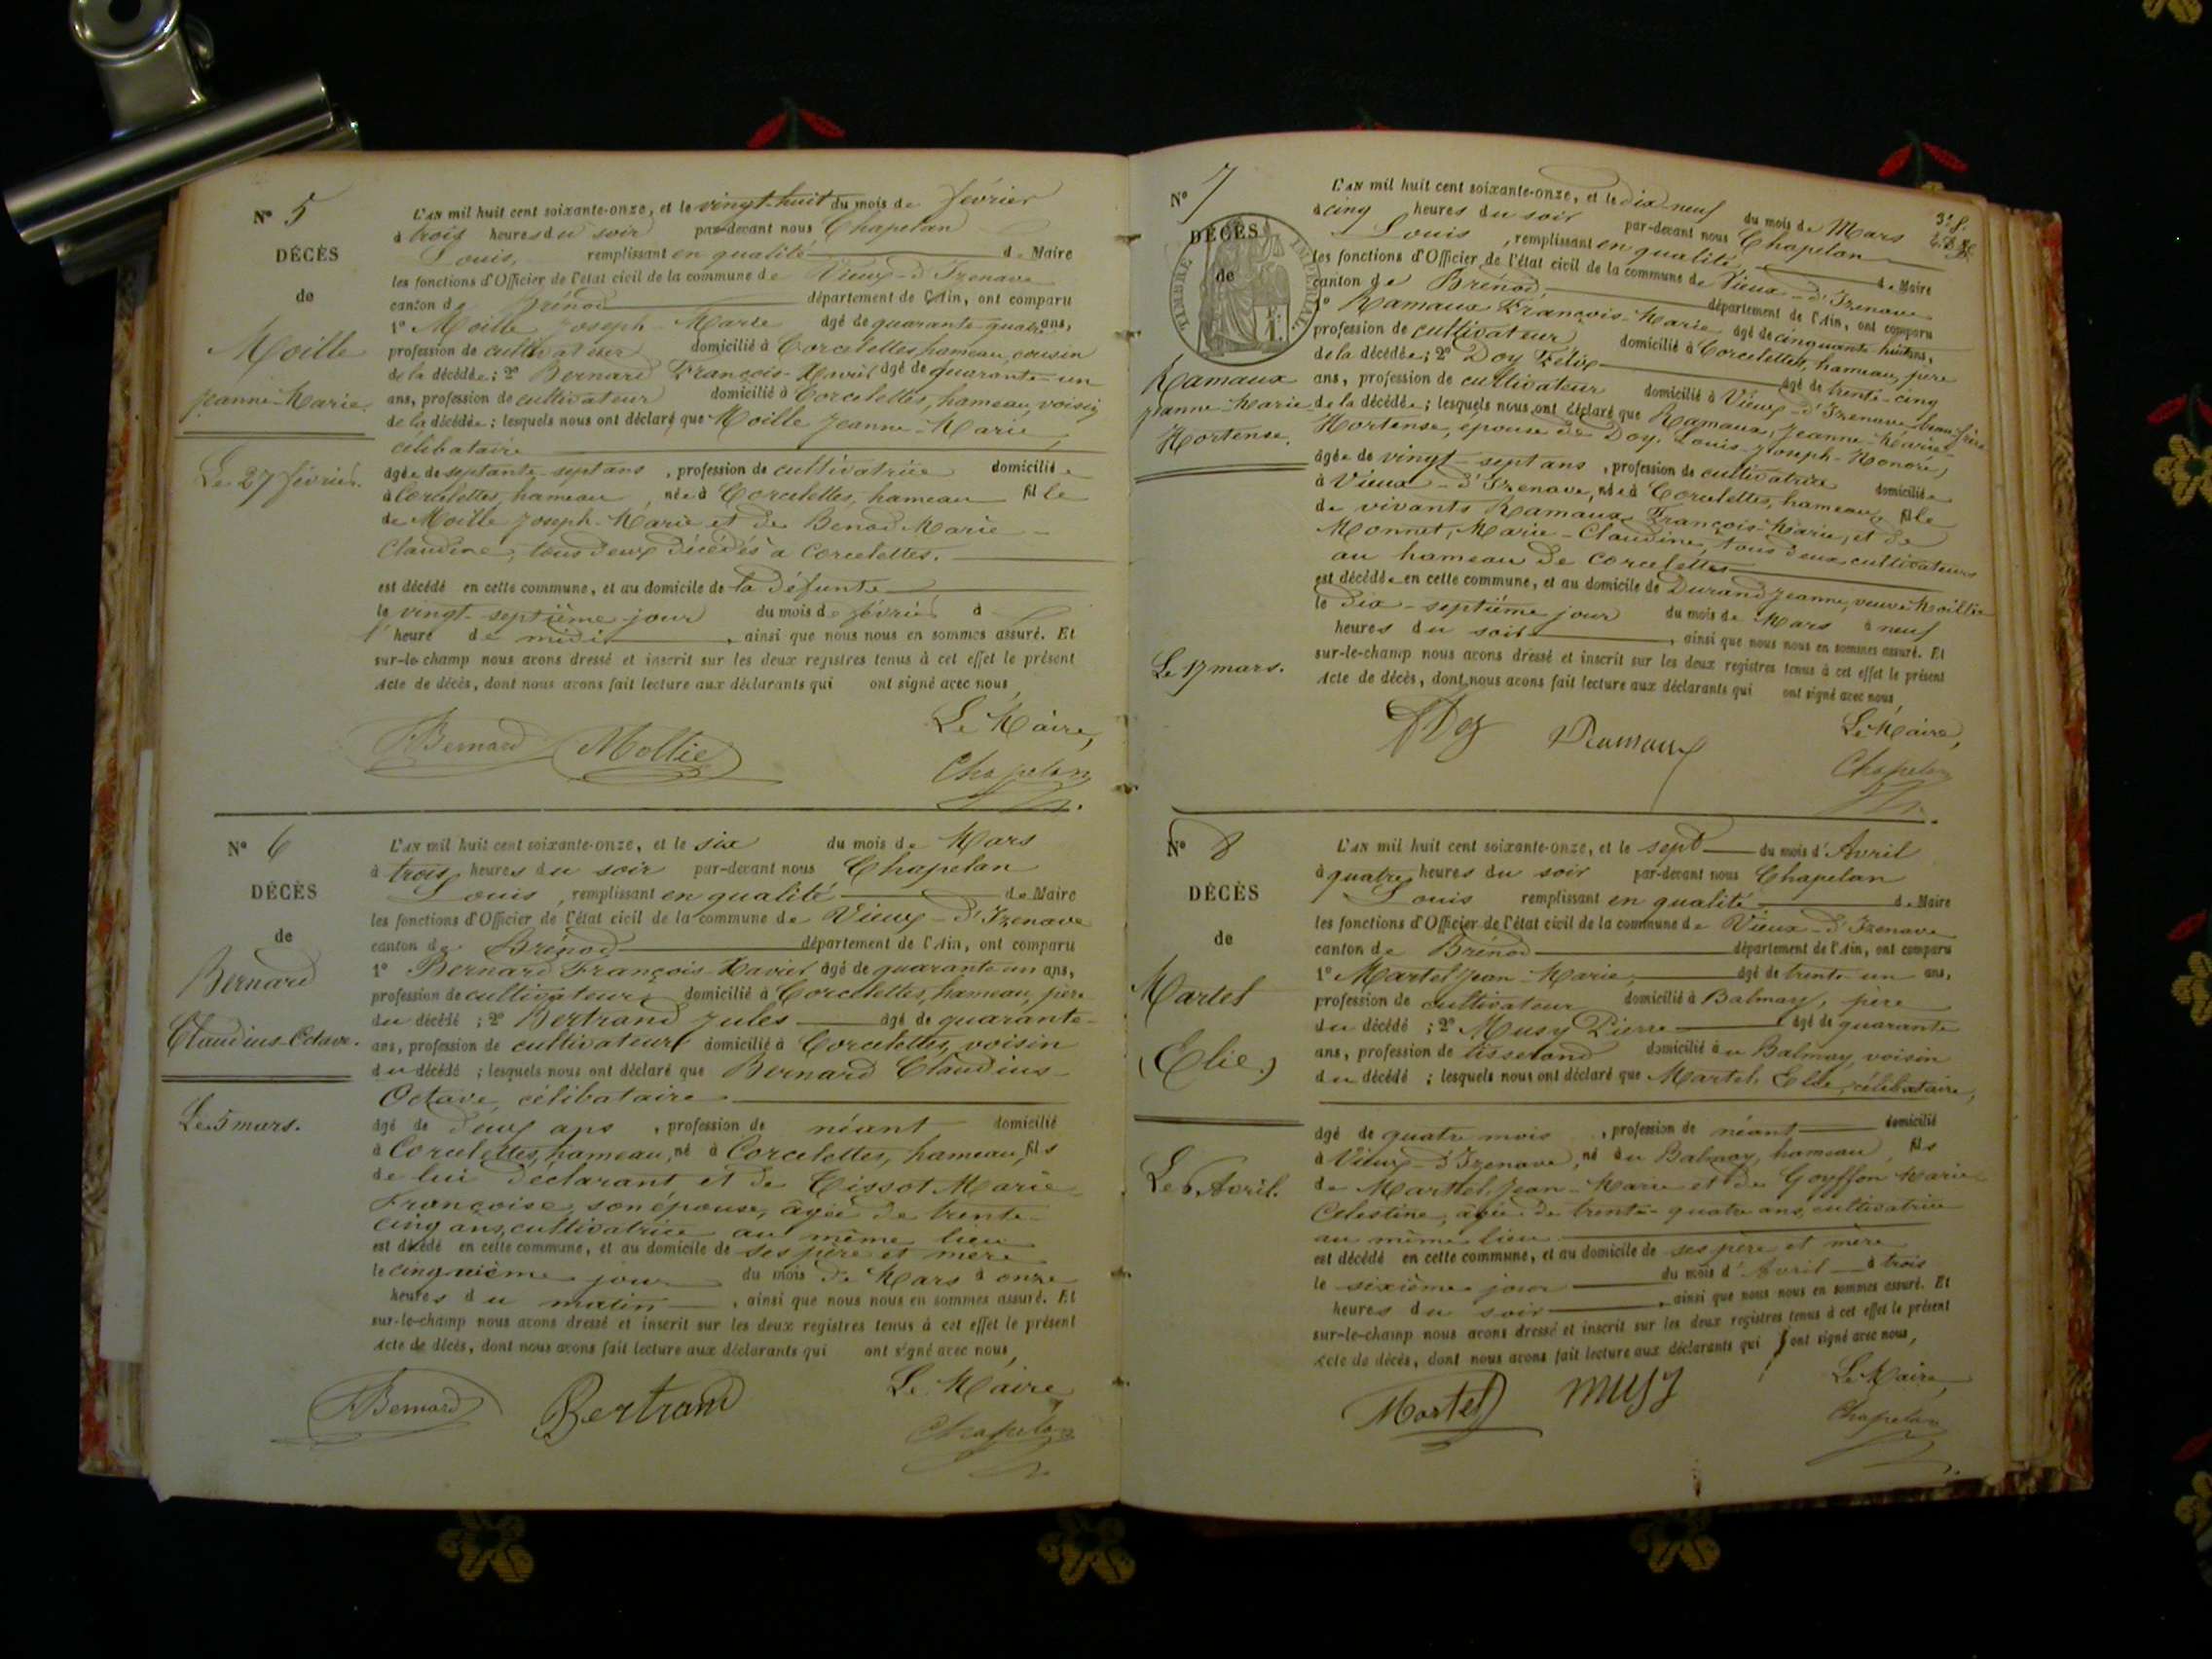 N° 5
DÉCÈS
de
Moille
Jeanne-Marie.
Le 27 février.
L'AN mil huit cent soixante-onze, et le vingt-huit du mois de février
à trois heures du soir par-devant nous Chapelan
Louis, remplissant en qualité de Maire
les fonctions d'Officier de l'état civil de la commune de Vieux-d'Izenave
canton de Brénod département de l'Ain, ont comparu
1° Moille Joseph-Marie âgé de quarante-quatre ans,
profession de cultivateur domicilié à Corcelettes, hameau, cousin
de la décédée; 2° Bernard François-Xavier âgé de quarante-un
ans, profession de cultivateur domicilié à Corcelettes, hameau, voisin
de la décédée; lesquels nous ont déclaré que Moille Jeanne-Marie,
célibataire
âgée de septante-sept ans, profession de cultivatrice domiciliée
à Corcelettes, hameau, née à Corcelettes, hameau fille
de Moille Joseph-Marie et de Benod Marie-
Claudine, tous deux décédés à Corcelettes.
est décédé en cette commune, et au domicile de la défunte
le vingt-septième jour du mois de février à
l'heure de midi, ainsi que nous nous en sommes assuré. Et
sur-le-champ nous avons dressé et inscrit sur les deux registres tenus à cet effet le présent
Acte de décès, dont nous avons fait lecture aux déclarants qui ont signé avec nous,
Le Maire,
Bernard Mollie Chapelan
N° 6
DÉCÈS
de
Bernard
Claudius-Octave.
Le 5 mars.
L'AN mil huit cent soixante-onze, et le six du mois de Mars
à trois heures du soir par-devant nous Chapelan
Louis, remplissant en qualité de Maire
les fonctions d'Officier de l'état civil de la commune de Vieux-d'Izenave
canton de Brénod département de l'Ain, ont comparu
1° Bernard François-Xavier âgé de quarante un ans,
profession de cultivateur, domicilié à Corcelettes, hameau, père
du décédé; 2° Bertrand Jules âgé de quarante-
ans, profession de cultivateur domicilié à Corcelettes, voisin
du décédé; lesquels nous ont déclaré que Bernard Claudius-
Octave, célibataire
âgé de deux ans, profession de néant domicilié
à Corcelettes, hameau, né à Corcelettes, hameau, fils
de lui déclarant et de Tissot Marie-
Françoise, son épouse, âgée de trente-
cinq ans, cultivatrice au même lieu
est décédé en cette commune, et au domicile de ses père et mère
le cinquième jour du mois de Mars à onze
heures du matin, ainsi que nous nous en sommes assuré. Et
sur-le-champ nous avons dressé et inscrit sur les deux registres tenus à cet effet le présent
Acte de décès, dont nous avons fait lecture aux déclarants qui ont signé avec nous,
Le Maire
Bernard Bertrand Chapelan
N° 7
DÉCÈS
de
TIMBRE IMPÉRIAL
Ramaux
Jeanne-Marie-
Hortense.
Le 17 mars.
L'AN mil huit cent soixante-onze, et le dix-neuf du mois de Mars
à cinq heures du soir par-devant nous Chapelan
Louis, remplissant en qualité de Maire
les fonctions d'Officier de l'état civil de la commune de Vieux-d'Izenave
canton de Brénod, département de l'Ain, ont comparu
1° Ramaux François-Marie âgé de cinquante huit ans,
profession de cultivateur domicilié à Corcelettes, hameau, père
de la décédée; 2° Doy Félix âgé de trente-cinq
ans, profession de cultivateur domicilié à Vieux-d'Izenave beau-frère
de la décédée; lesquels nous ont déclaré que Ramaux, Jeanne-Marie-
Hortense, épouse de Doy, Louis-Joseph-Honoré,
âgée de vingt-sept ans, profession de cultivatrice domiciliée
à Vieux-d'Izenave, née à Corcelettes, hameau, fille
de vivants Ramaux François-Marie, et de
Monnet, Marie-Claudine, tous deux cultivateurs
au hameau de Corcelettes
est décédée en cette commune, et au domicile de Durand Jeanne, veuve Moillie
le dix-septième jour du mois de Mars à neuf
heures du soir, ainsi que nous nous en sommes assuré. Et
sur-le-champ nous avons dressé et inscrit sur les deux registres tenus à cet effet le présent
Acte de décès, dont nous avons fait lecture aux déclarants qui ont signé avec nous,
Le Maire,
Doy Ramaux Chapelan
N° 8
DÉCÈS
de
Martel
(Elie.)
Le 6 Avril.
L'AN mil huit cent soixante-onze, et le sept du mois d'Avril
à quatre heures du soir par-devant nous Chapelan
Louis remplissant en qualité de Maire
les fonctions d'Officier de l'état civil de la commune de Vieux-d'Izenave
canton de Brénod département de l'Ain, ont comparu
1° Martel Jean-Marie, âgé de trente un ans,
profession de cultivateur domicilié à Balmay, père
du décédé; 2° Musy Pierre âgé de quarante
ans, profession de tisserand domicilié au Balmay, voisin
du décédé; lesquels nous ont déclaré que Martel Elie, célibataire,
âgé de quatre mois, profession de néant domicilié
à Vieux-d'Izenave, né au Balmay, hameau, fils
de Marttel, Jean-Marie et de Goyffon Marie-
Célestine, âgée de trente-quatre ans, cultivatrice
au même lieu
est décédé en cette commune, et au domicile de ses père et mère
le sixième jour du mois d'Avril à trois
heures du soir, ainsi que nous nous en sommes assuré. Et
sur-le-champ nous avons dressé et inscrit sur les deux registres tenus à cet effet le présent
Acte de décès, dont nous avons fait lecture aux déclarants qui ont signé avec nous,
Le Maire,
Martel MUSY Chapelan